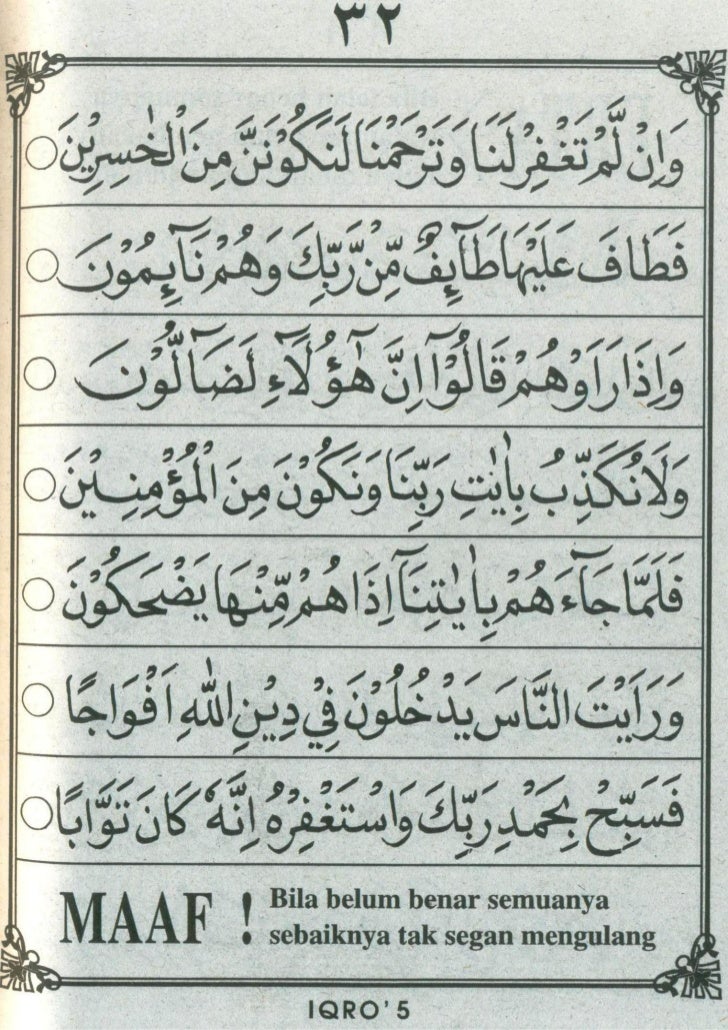 ٣٢
وَاِنْ لَّمْ تَغْفِرْ لَنَا وَتَرْحَمْنَا لَنَكُوْنَنَّ مِنَ الْخٰسِرِيْنَ
فَطَافَ عَلَيْهَا طَآئِفٌ مِّنْ رَّبِّكَ وَهُمْ نَآئِمُوْنَ
وَاِذَا رَاَوْهُمْ قَالُوْٓا اِنَّ هٰٓؤُلَآءِ لَضَآلُّوْنَ
وَلَا نُكَذِّبُ بِاٰيٰتِ رَبِّنَا وَنَكُوْنَ مِنَ الْمُؤْمِنِيْنَ
فَلَمَّا جَآءَهُمْ بِاٰيٰتِنَآ اِذَا هُمْ مِّنْهَا يَضْحَكُوْنَ
وَرَاَيْتَ النَّاسَ يَدْخُلُوْنَ فِيْ دِيْنِ اللّٰهِ اَفْوَاجًا
فَسَبِّحْ بِحَمْدِ رَبِّكَ وَاسْتَغْفِرْهُ اِنَّهٗ كَانَ تَوَّابًا
MAAF ! Bila belum benar semuanya
sebaiknya tak segan mengulang
IQRO' 5